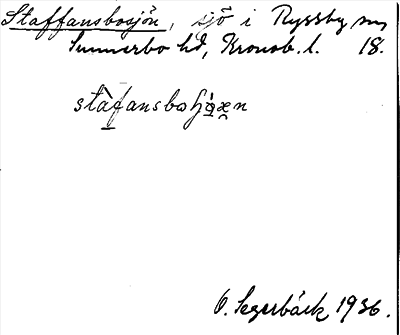 Staffansbosjön, sjö i Ryssby sn,
Sunnerbo hd, Kronob. l. 18.
O. Segerbäck 1936.